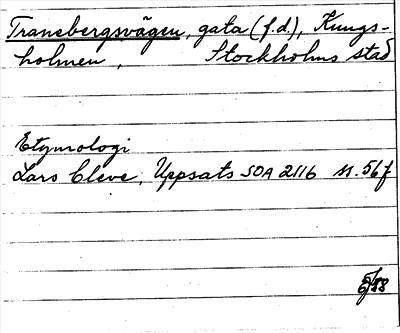 Tranebergsvägen, gata (f.d.), Kungs-
holmen, Stockholms stad
Etymologi
Lars Cleve, Uppsats SOA 2116 s. 56 f